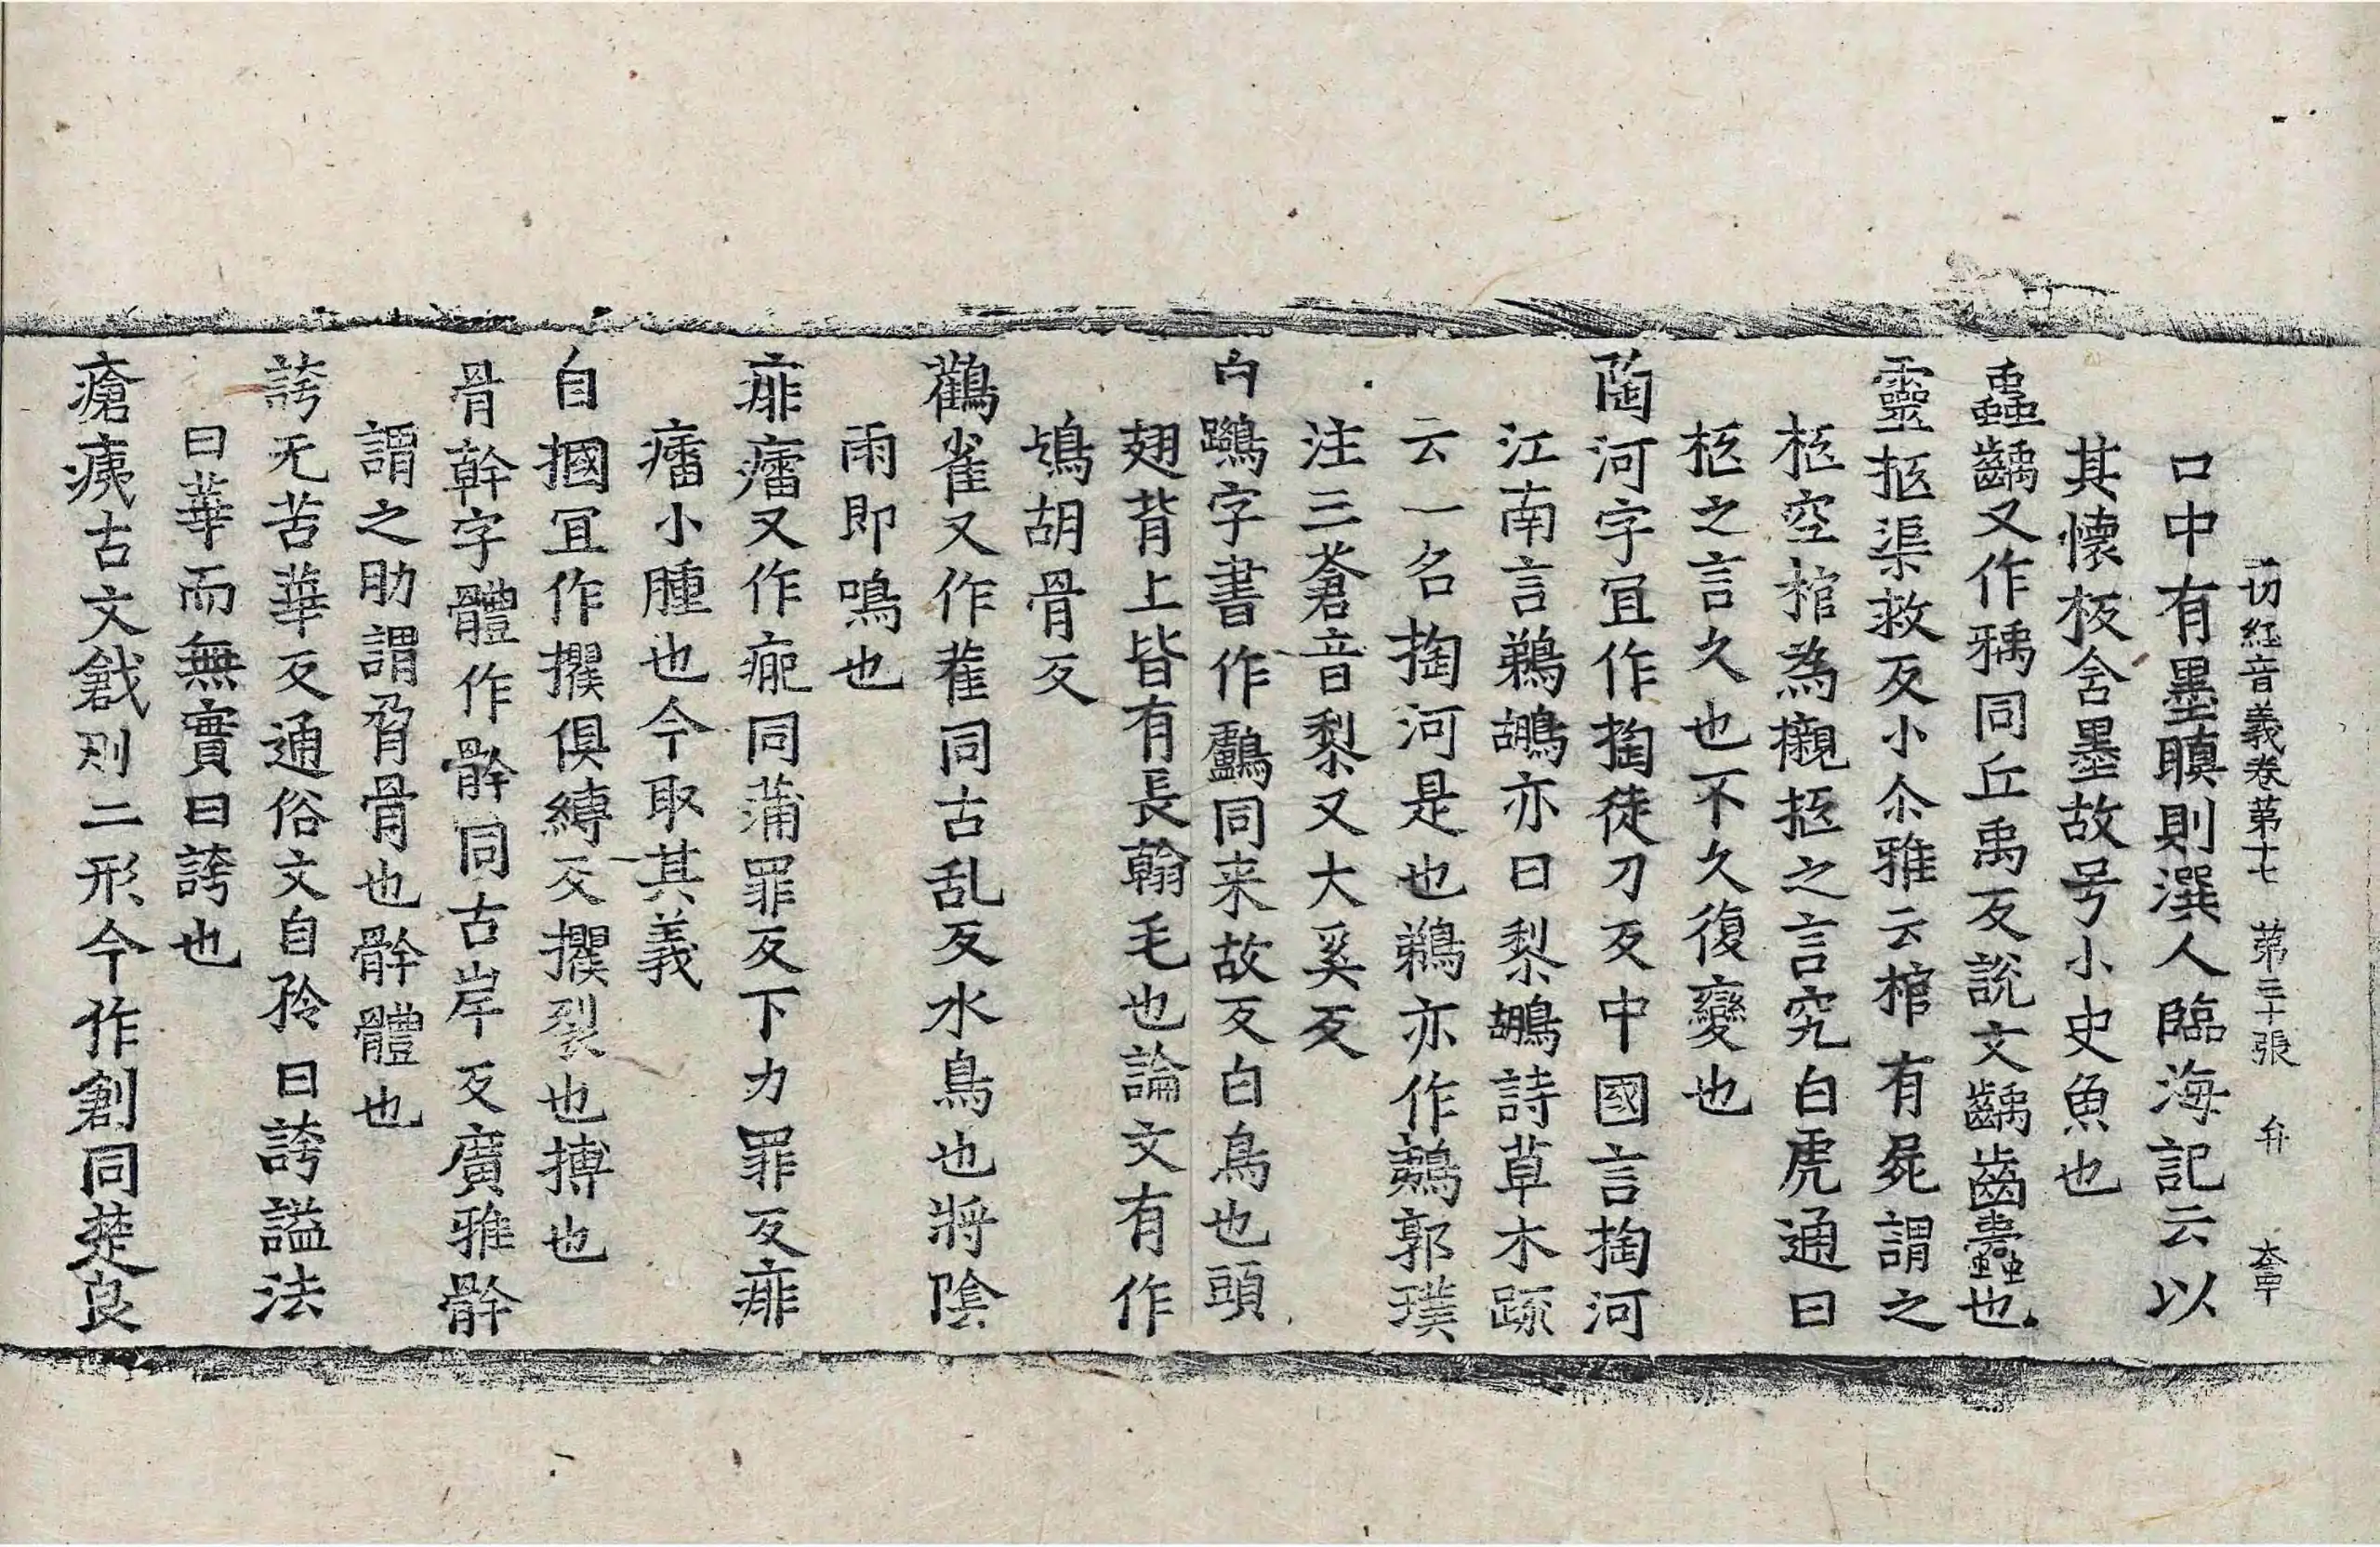 一切経音義卷第十七 第三十張 弁 夲甲
口中有墨瞋則潠人臨海記云以
其懷板含墨故号小史魚也
齲齒又作𤘐同丘禹反說文齲齒蠹也
靈柩渠救反小尒雅云棺有屍謂之
柩空棺為櫬柩之言究白虎通曰
柩之言久也不久復變也
陶河字冝作掏徒刀反中國言掏河
江南言鵜鶘亦曰黎鶘詩草木疏
云一名掏河是也鵜亦作鶗郭璞
注三蒼音黎又大奚反
白鷺字書作鸕同来故反白鳥也頭
翅背上皆有長翰毛也論文有作
鴣胡骨反
鸛雀又作雚同古乱反水鳥也將陰
雨即鳴也
痱癗又作㾦同蒲罪反下力罪反痱
癗小腫也今取其義
自摑冝作攫俱縛反攫裂也搏也
骨幹字體作骭同古岸反廣雅骭
謂之肋謂脅骨也骭體也
誇无苦華反通俗文自矜曰誇謚法
曰華而無實曰誇也
瘡痍古文戧刅二形今作創同楚良